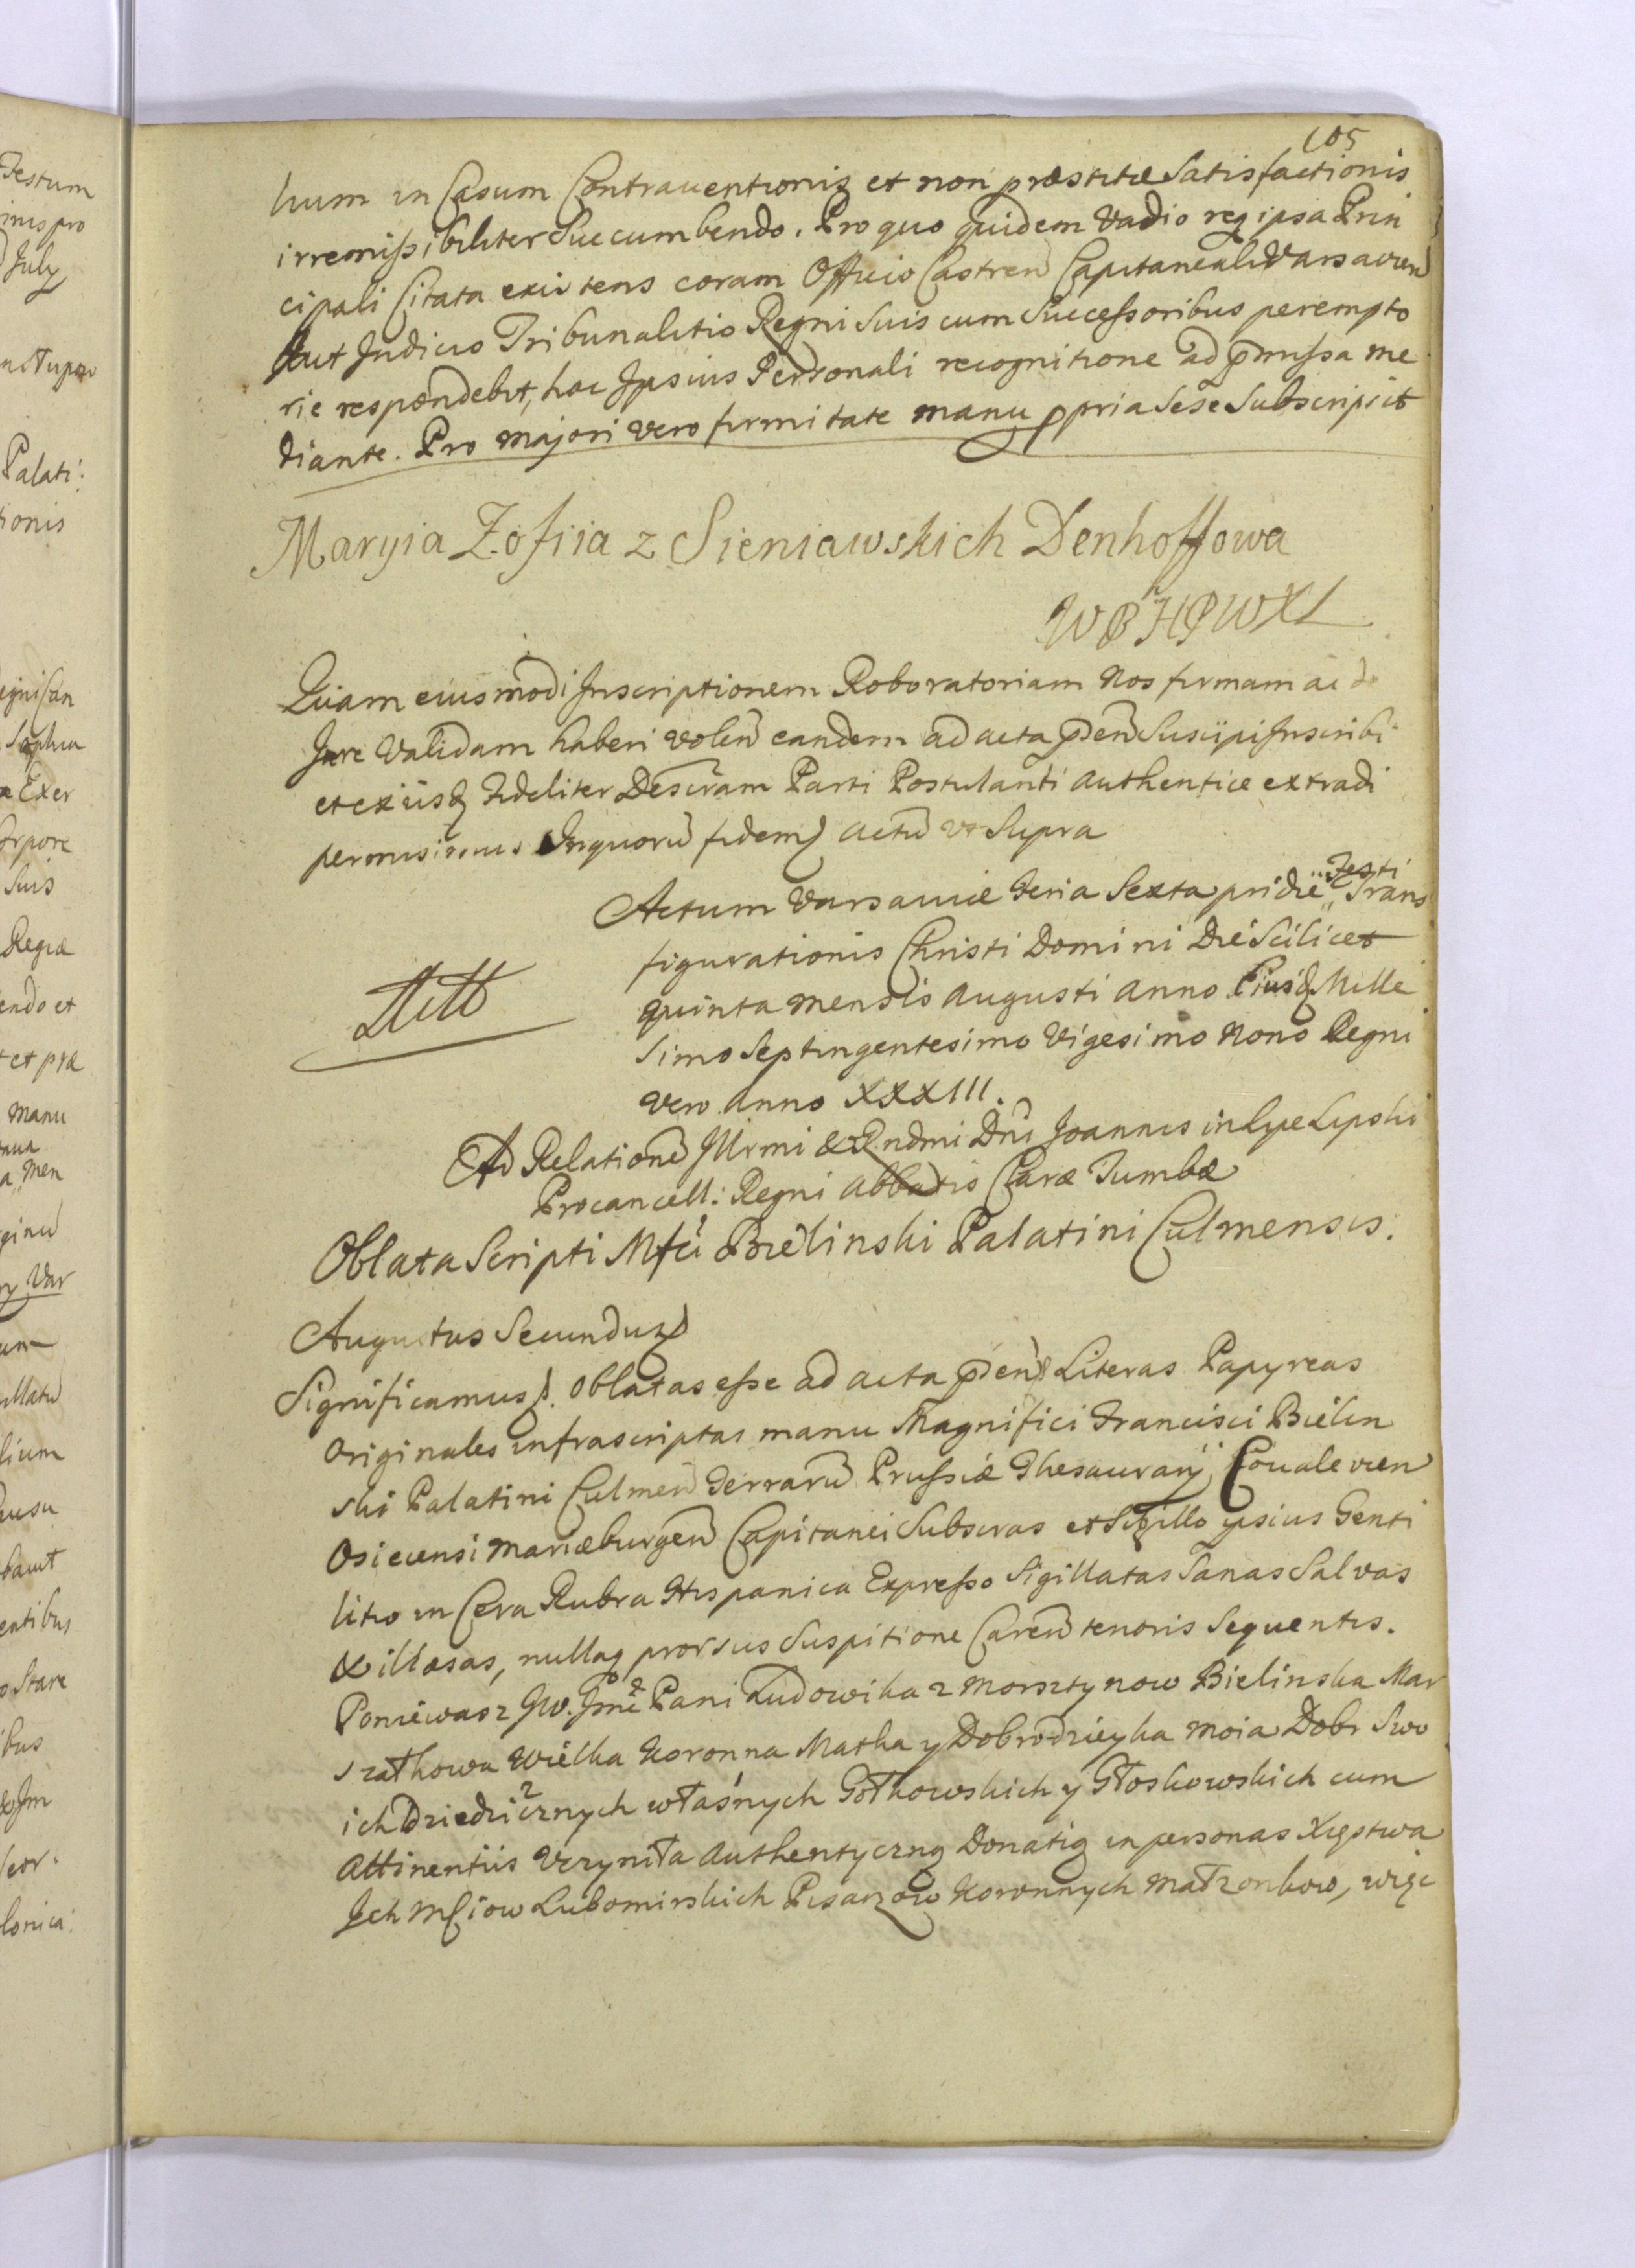 105
hum in Casum Contrauentionis et non præstitæ Satisfactionis
irremissibiliter Succumbendo. Pro quo quidem Vadio reg ipsa Prin
cipali Citata existens coram Officio Castren Capitaneali Varsavien
aut Judicio Tribunalitio Regni Suis cum Successoribus perempto
rie respondebit, hac Ipsius Personali recognitione ad pmissa me
diante. Pro majori vero firmitate manu ppria Sese Subscripsit
Maryia Zofiia z Sieniawskich Denhoffowa
WPHPWXL
Quam eiusmodi Inscriptionem Roboratoriam Nos firmam ac de
Jure Validam haberi volen eandem ad acta pen Suscipi Inscribi
et ex iisq Fideliter Descram Parti Postulanti authentice extradi
permisimus Inquoru fidem actu vt Supra
Actum Varsaviæ Feria Sexta pridie Festi Trans
figurationis Christi Domini Die Scilicet
quinta mensis Augusti anno Eiusq Mille
simo Septingentesimo Vigesimo Nono Regni
vero Anno XXXIII.
Ad Relatione Illrmi & Rndmi Dni Joannis in Lipe Lipski
Procancell: Regni Abbatis Claræ Tumbæ
Oblata Scripti Mfci Bielinski Palatini Culmensis.
Augustus Secundus
Significamus. Oblatas esse ad acta pen Literas Papyreas
Originales infrascriptas manu Magnifici Francisci Bielin
ski Palatini Culmen Terraru Prussiæ Thesaurarij, Covalevien
Osiecensi Mariæburgen Capitanei Subscras et Sigillo ipsius Genti
litio in Cera Rubra Hispanica Expresso Sigillatas Sanas Salvas
& illæsas, nullaq prorsus Suspitione Caren tenoris Sequentis.
Poniewasz JW. Jme Pani Ludowika z Morsztynow Bielinska Mar
szałkowa Wielka Koronna Matka y Dobrodzieyka moia Dobr Swo
ich Dziedzicznych własnych Gołkowskich y Głoskowskich cum
Attinentiis Vczyniła Authentyczną Donatią in personas Xięstwa
Ich Mściow Lubomirskich Pisarzow Koronnych Małzonkow, więc